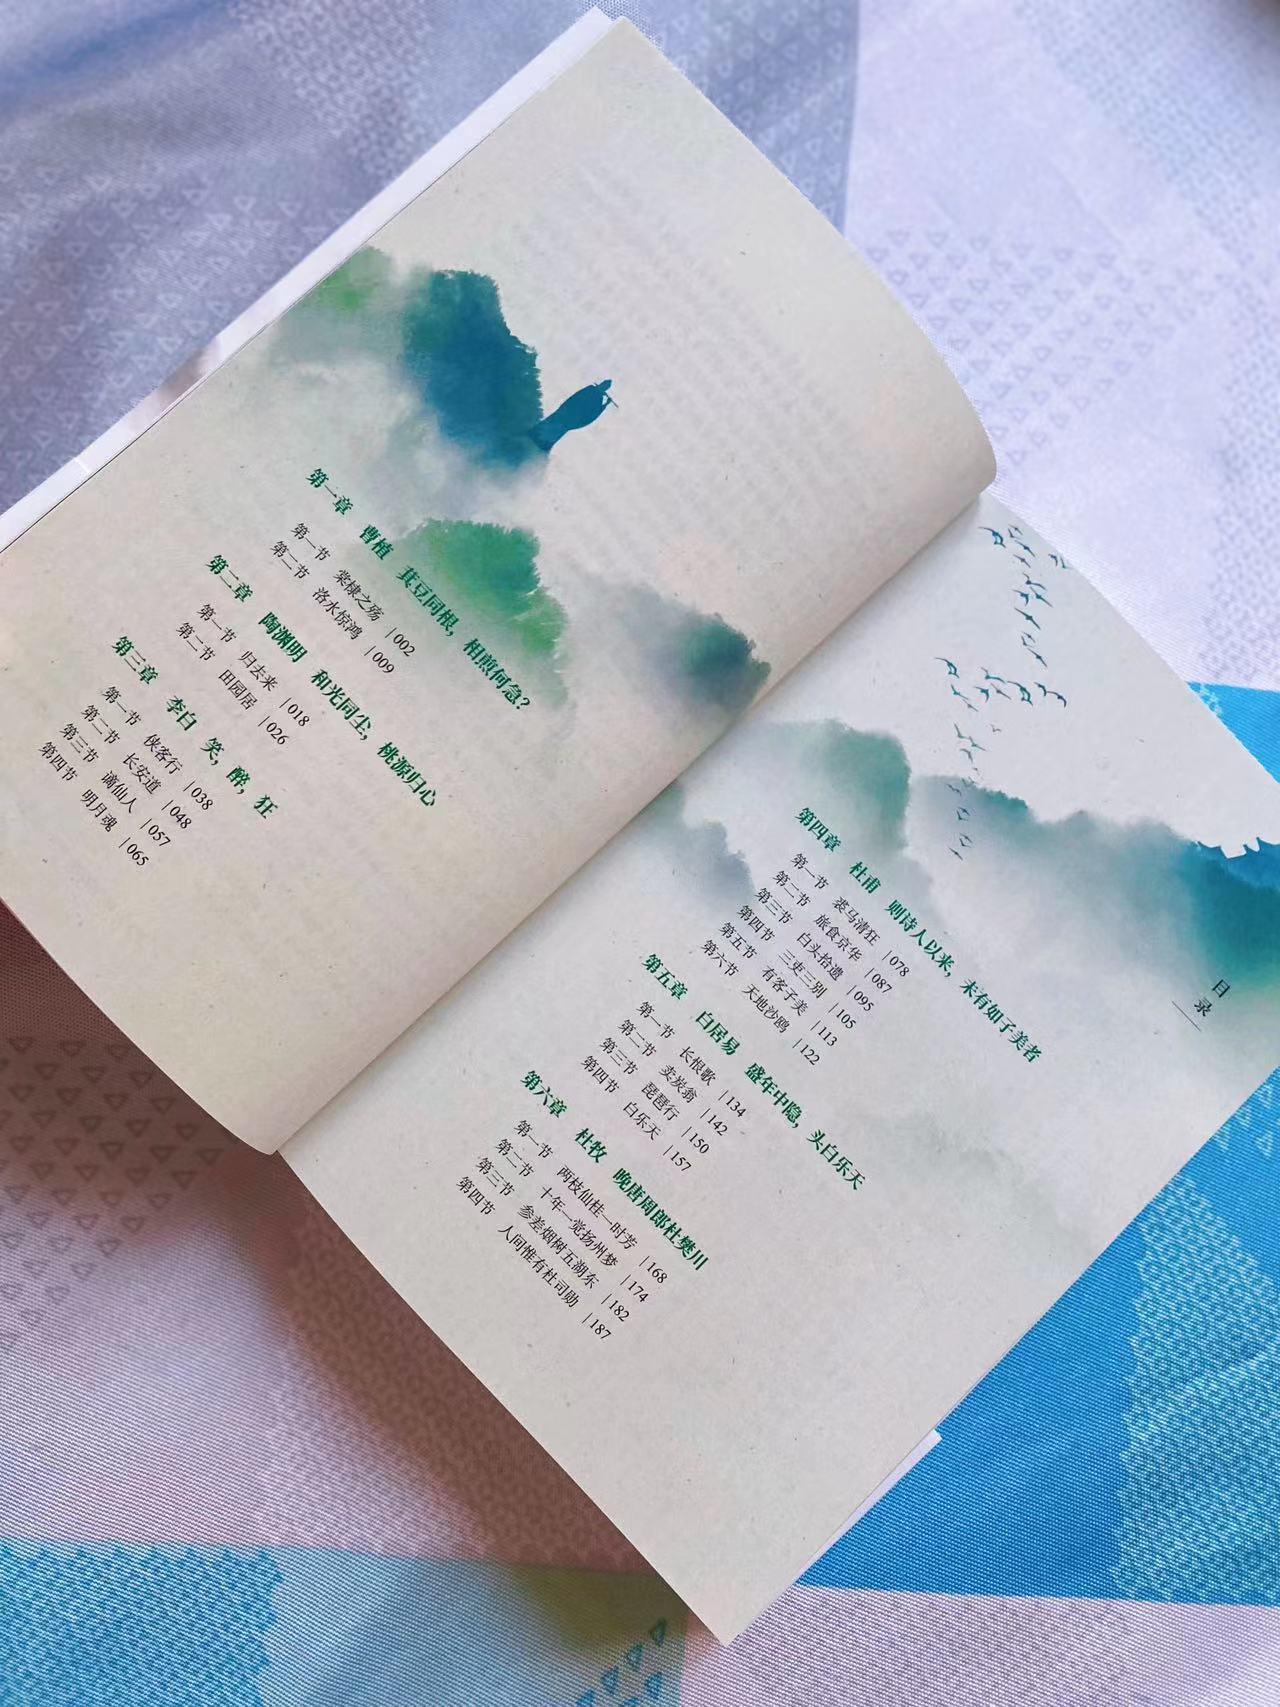 第一章 曹植 萁豆同根，相煎何急？
第一节 棠棣之殇 | 002
第二节 洛水惊鸿 | 009
第二章 陶渊明 和光同尘，桃源归心
第一节 归去来 | 018
第二节 田园居 | 026
第三章 李白 笑，醉，狂
第一节 侠客行 | 038
第二节 长安道 | 048
第三节 谪仙人 | 057
第四节 明月魂 | 065
目录
第四章 杜甫 则诗人以来，未有如子美者
第一节 裘马清狂 | 078
第二节 旅食京华 | 087
第三节 白头拾遗 | 095
第四节 三吏三别 | 105
第五节 有客子美 | 113
第六节 天地沙鸥 | 122
第五章 白居易 盛年中隐，头白乐天
第一节 长恨歌 | 134
第二节 卖炭翁 | 142
第三节 琵琶行 | 150
第四节 白乐天 | 157
第六章 杜牧 晚唐周郎杜樊川
第一节 两枝仙桂一时芳 | 168
第二节 十年一觉扬州梦 | 174
第三节 参差烟树五湖东 | 182
第四节 人间惟有杜司勋 | 187